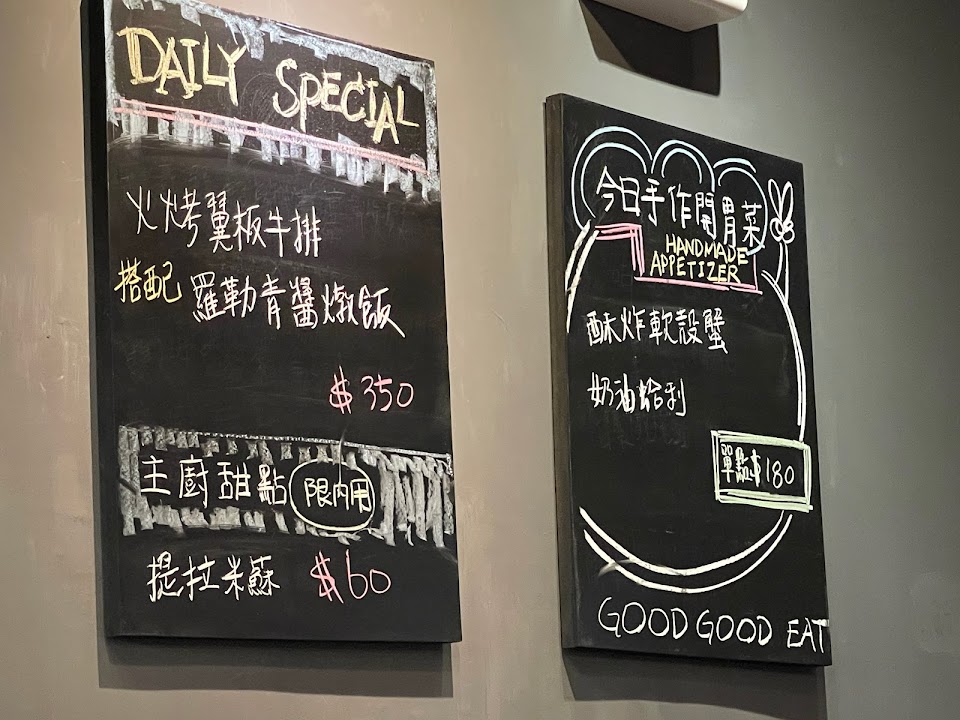 DAILY SPECIAL
火烤翼板牛排
搭配 羅勒青醬燉飯
$350
主廚甜點 限內用
提拉米蘇 $60
今日手作開胃菜
HANDMADE
APPETIZER
酥炸軟殼蟹
奶油蛤利
單點$180
GOOD GOOD EAT